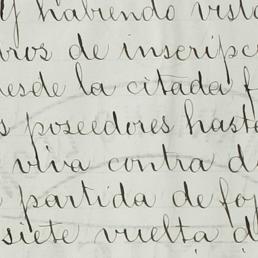 y habiendo visto
de inscripc
desde la citada f
s poseedores hasta
viva contra d
partida de fo
siete vuelta d